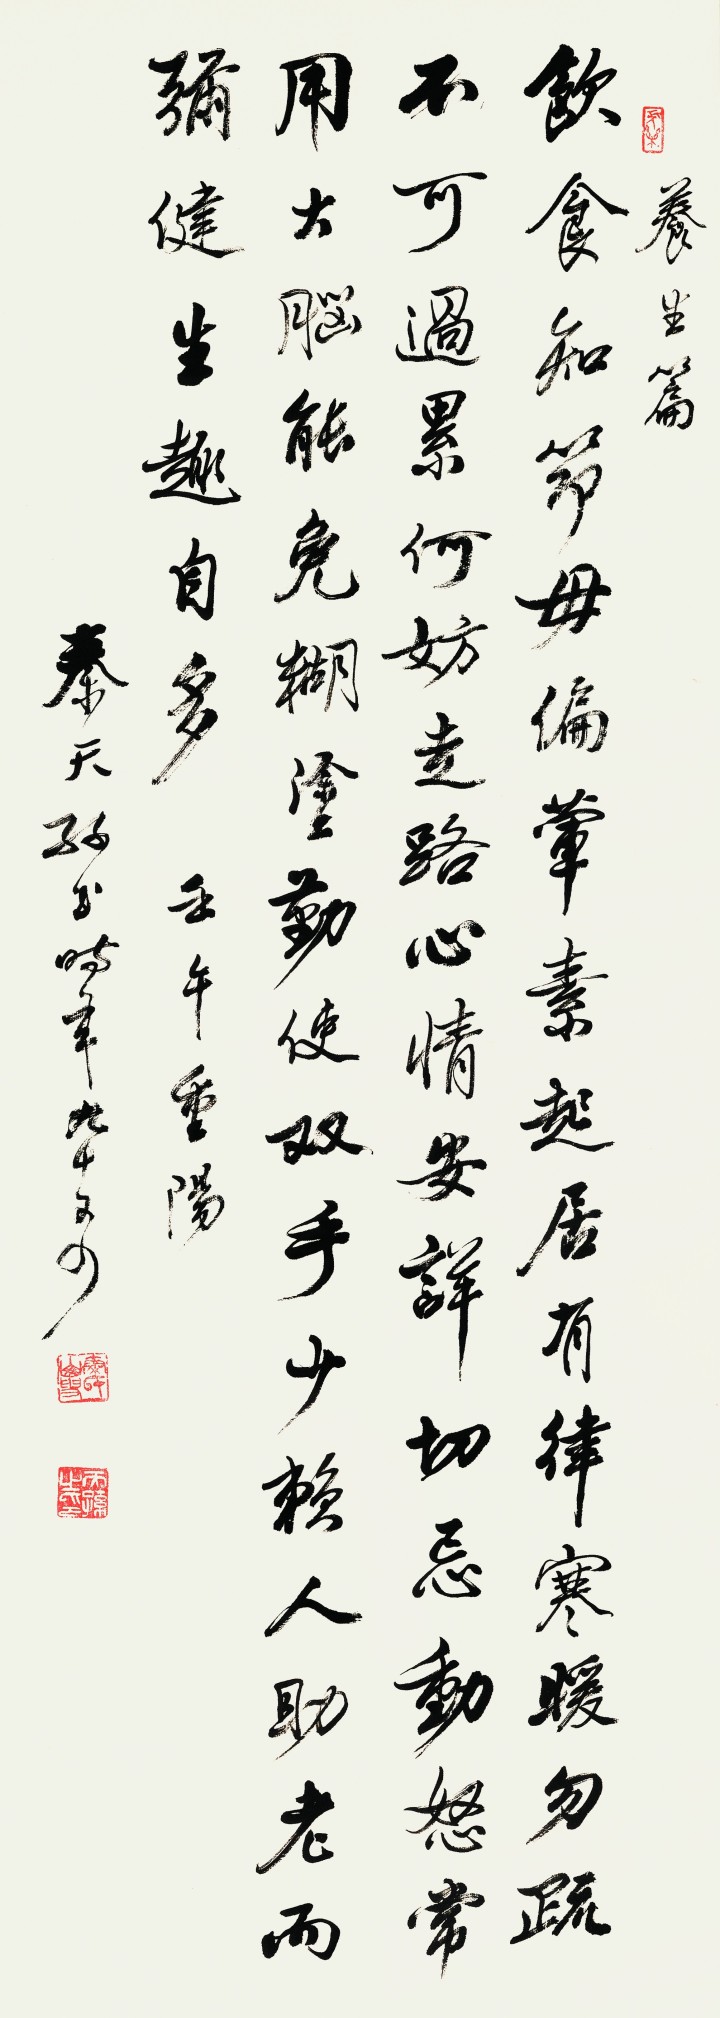 養生篇
飲食知節毋偏葷素起居有律寒暖勿疏
不可過累何妨走路心情安詳切忌動怒常
用大腦能免糊塗勤使双手少賴人助老而
彌健生趣自多
壬午重陽
秦天孫書時年九十又四